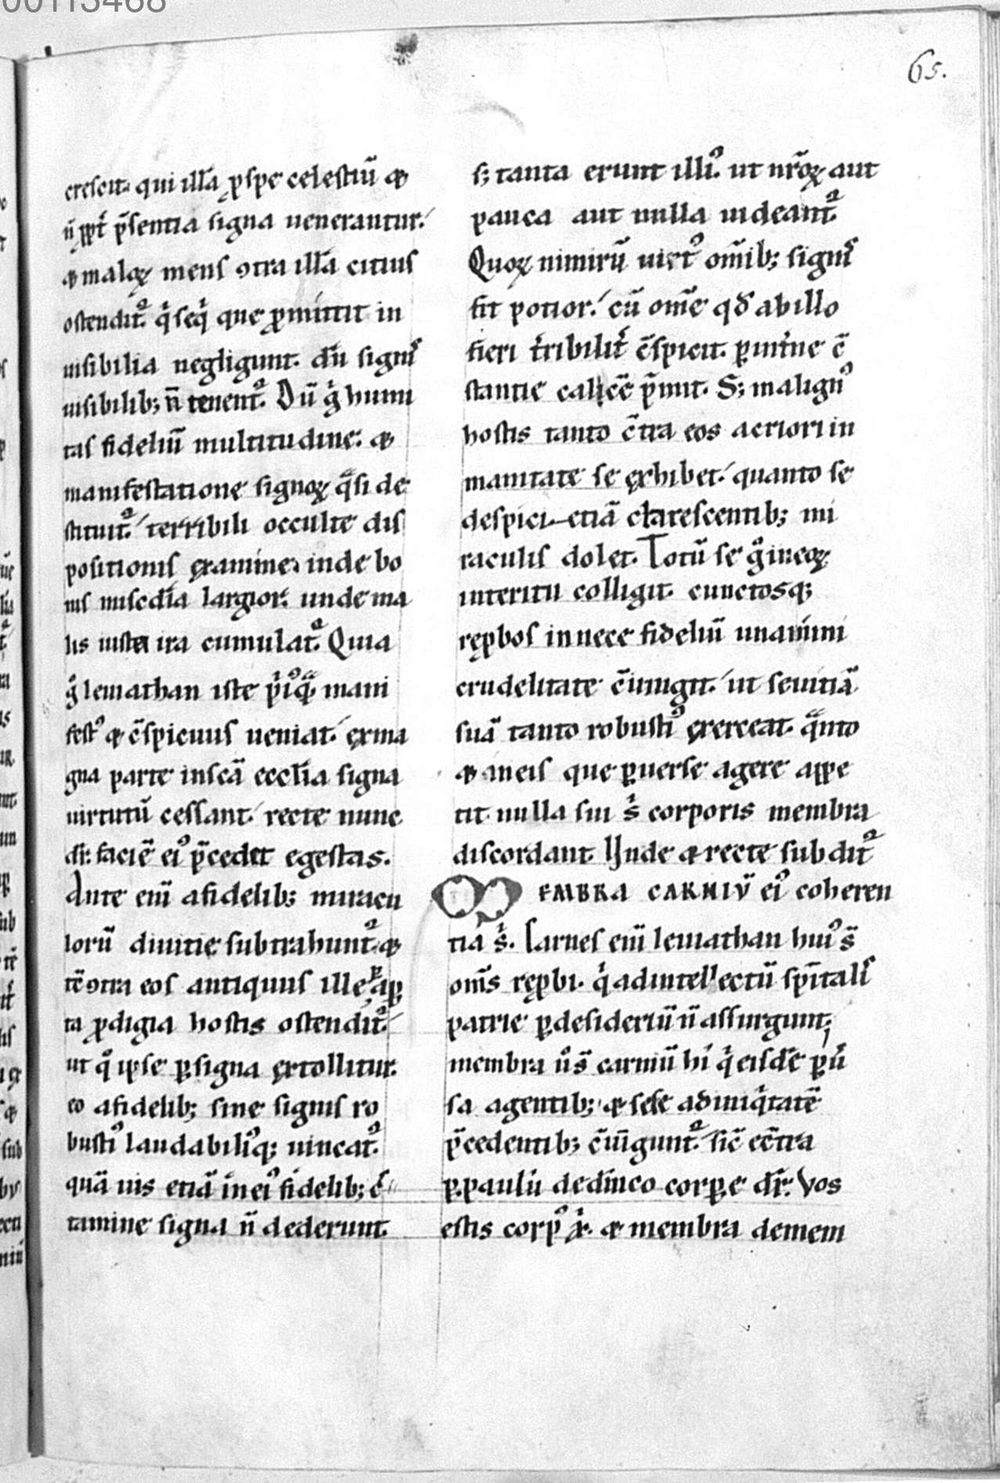 00113468
65.
crescit. qui illā ꝓ spe celestiū ⁊
ñ ꝓpt̄ p̄sentia signa uenerantur.
⁊ maloꝝ mens ꝯtra illā citius
ostendit᷑. q̇ seq̇ que ꝓmittit in
uisibilia negligunt. dū signis
uisibilib; ñ tenent᷑. Dū g̊ humi
tas fideliū multitudine. ⁊
manifestatione signoꝝ q̄si de
stituit᷑ terribili occulte dis
positionis ęxamine. inde bo
nis misc̄dia largior. unde ma
lis iusta ira cumulat᷑. Quia
g̊ leuiathan iste p̄iꝰq̄ mani
festꝰ ⁊ c̄spicuus ueniat. ęx ma
gna parte in sc̄a ecclīa signa
uirtutū cessant. recte nunc
dr̄. faciē eiꝰ p̄cedet egestas.
Ante eni afidelib; miracu
lorū diuitie subtrahunt᷑. ⁊
tē ꝯtra eos antiquus ille ap
ta ꝓdigia hostis ostendit᷑.
ut q̊ ipse ꝑ signa ęxtollitur.
eo afidelib; sine signis ro
bustiꝰ laudabiliꝰq; uincat᷑.
quāuis etiā in eiꝰ fidelib; c̄
tamine signa ñ dederunt.
s; tanta erunt illiꝰ. ut nr̄oꝝ aut
pauca aut nulla uideant᷑.
Quoꝝ nimirū uirtꝰ om̄ib; signis
fit potior. cū om̄e qd̄ ab illo
fieri t̄ribilit̄ c̄spicit. ꝑ int̄ne c̄
stantie calcē p̄mit. S; malignꝰ
hostis tanto c̄tra eos acriori in
manitate se ęxhibet. quanto se
despici etiā clarescentib; mi
raculis dolet. Totū se g̊ in eoꝝ
interitu colligit. cunctosq;
ręꝓbos in nece fideliū unanimi
crudelitate c̄iungit. ut seuitiā
suā tanto robustiꝰ ęxerceat. q̄nto
⁊ in eis que ꝑuerse agere appe
tit. nulla sui s̄ corporis membra
discordant. Unde ⁊ recte subdit᷑.
MEMBRA CARNIV̄ eiꝰ coheren
tia s̄. Carnes eni leuiathan huiꝰ s̄
om̄s ręꝓbi. q̇ ad intellectū sp̄italis
patrie ꝑ desideriū ñ assurgunt.
membra ū s̄ carniū hi q̇ eisdē ꝑū
sa agentib; ⁊ sese ad iniq̇tatē
p̄cedentib; c̄iūgunt᷑. sic̄ ec̄tra
ꝑ paulū de dn̄ico corpe dr̄. Vos
estis corpꝰ xp̄i. ⁊ membra de mem